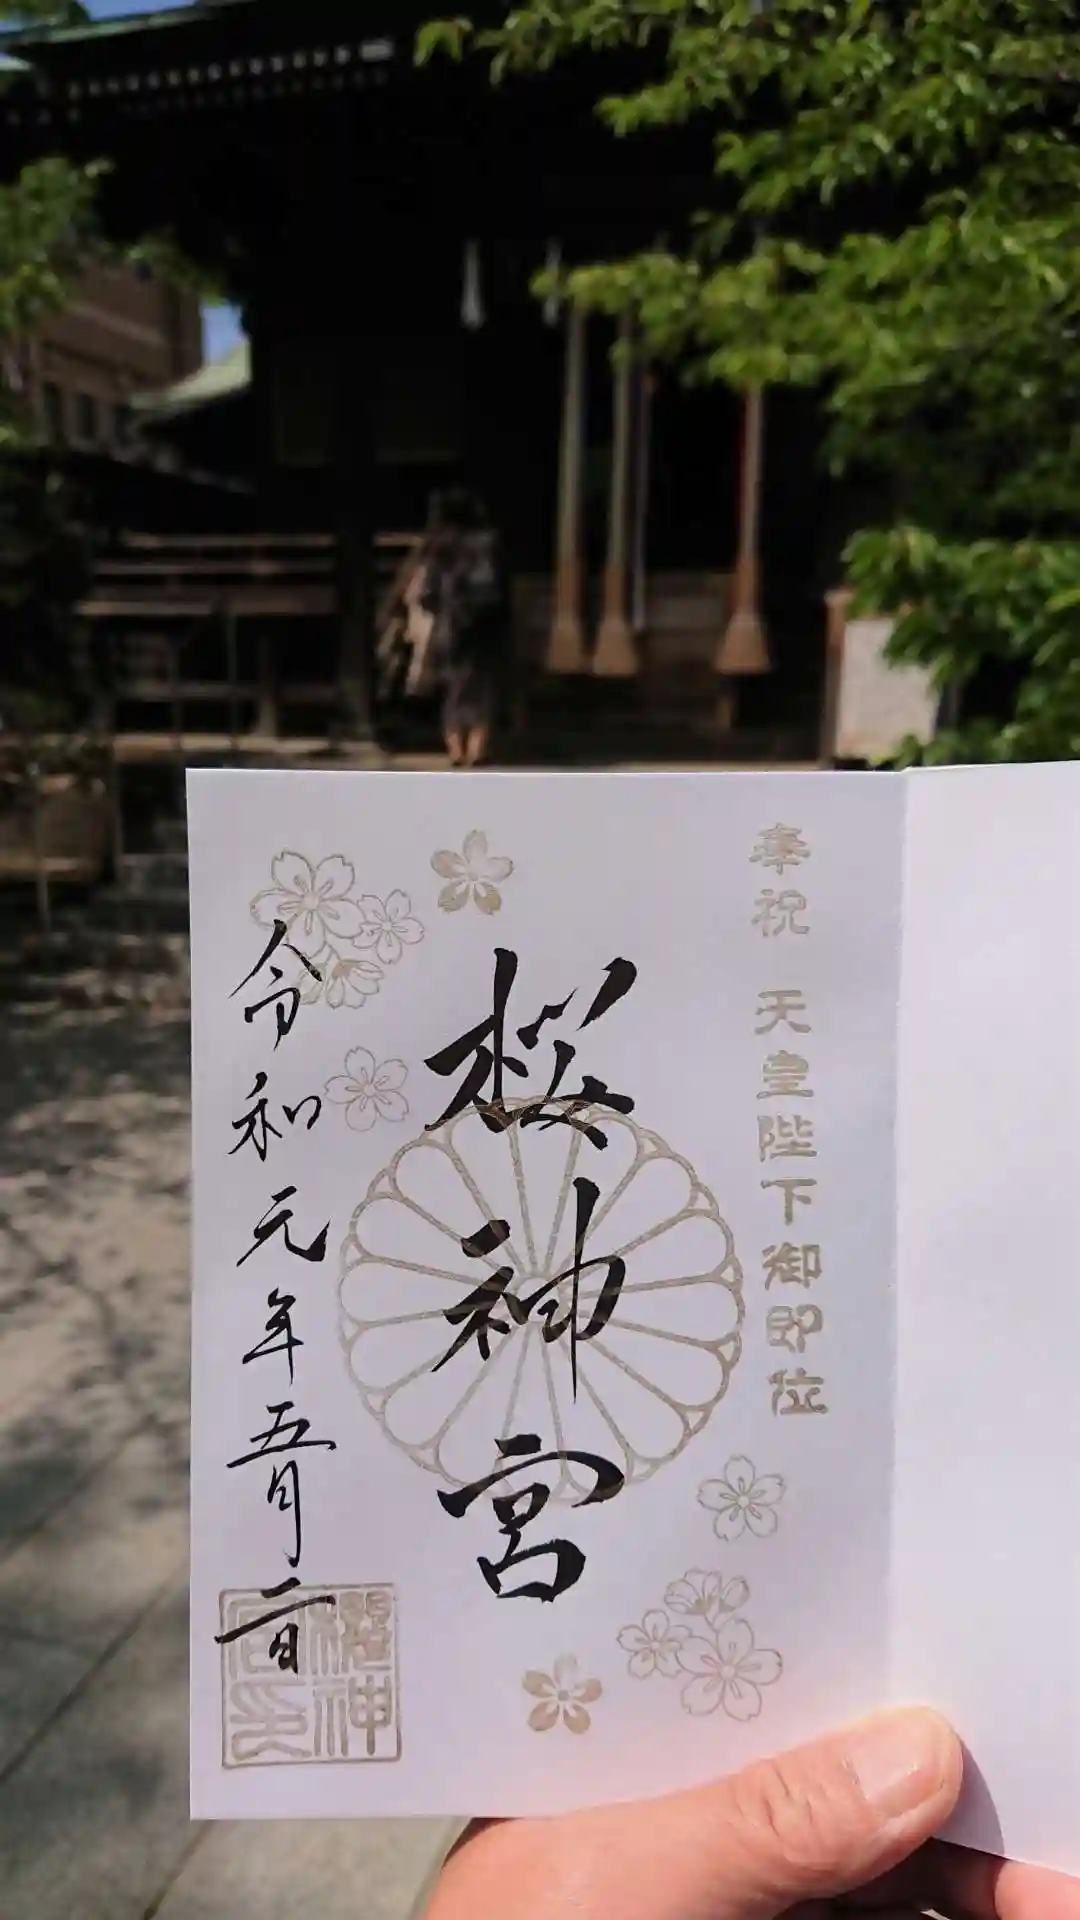 奉祝 天皇陛下御即位
桜神宮
令和元年五月二日
櫻神宮印